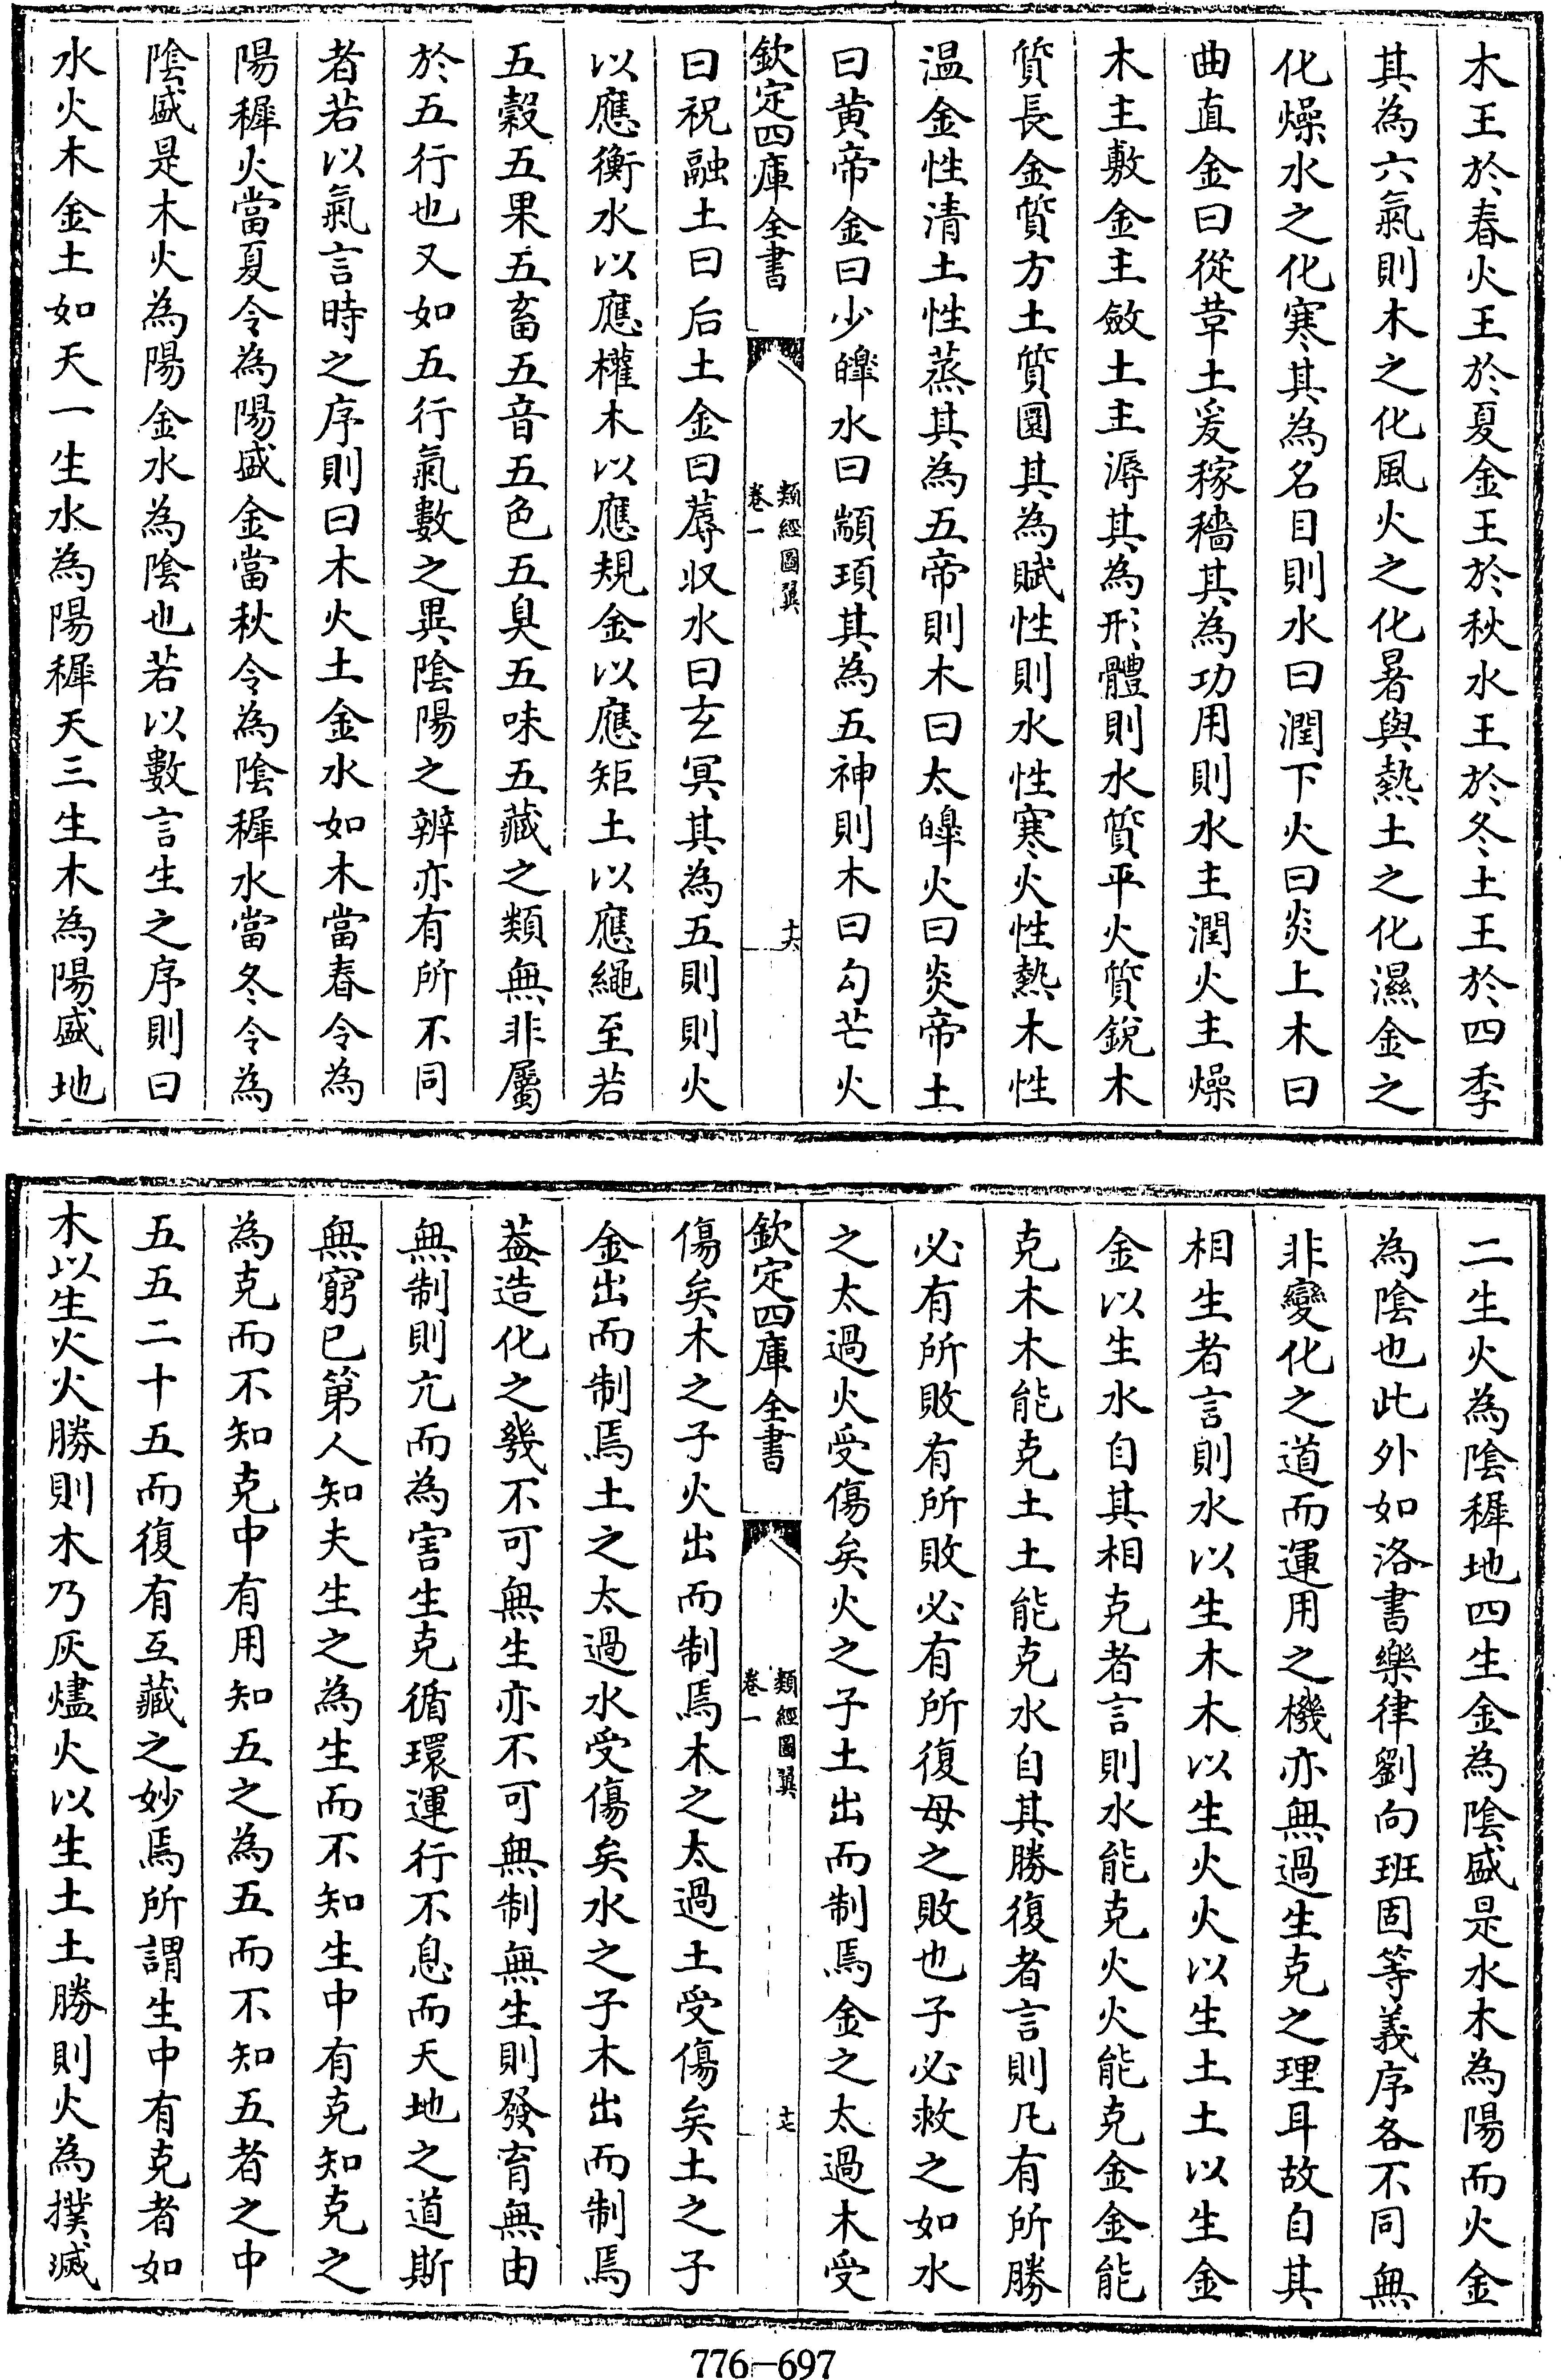 木王於春火王於夏金王於秋水王於冬土王於四季
其為六氣則木之化風火之化暑與熱土之化濕金之
化燥水之化寒其為名目則水曰潤下火曰炎上木曰
曲直金曰從革土爰稼穡其為功用則水主潤火主燥
木主敷金主斂土主溽其為形體則水質平火質銳木
質長金質方土質圜其為賦性則水性寒火性熱木性
温金性清土性蒸其為五帝則木曰太皞火曰炎帝土
曰黄帝金曰少皞水曰顓頊其為五神則木曰勾芒火
欽定四庫全書
類經圖翼
卷一
十六
曰祝融土曰后土金曰蓐収水曰玄冥其為五則則火
以應衡水以應權木以應規金以應矩土以應繩至若
五穀五果五畜五音五色五臭五味五藏之類無非屬
於五行也又如五行氣數之異陰陽之辨亦有所不同
者若以氣言時之序則曰木火土金水如木當春令為
陽穉火當夏令為陽盛金當秋令為陰穉水當冬令為
陰盛是木火為陽金水為陰也若以數言生之序則曰
水火木金土如天一生水為陽穉天三生木為陽盛地
二生火為陰穉地四生金為陰盛是水木為陽而火金
為陰也此外如洛書樂律劉向班固等義序各不同無
非變化之道而運用之機亦無過生克之理耳故自其
相生者言則水以生木木以生火火以生土土以生金
金以生水自其相克者言則水能克火火能克金金能
克木木能克土土能克水自其勝復者言則凡有所勝
必有所敗有所敗必有所復母之敗也子必救之如水
之太過火受傷矣火之子土出而制焉金之太過木受
欽定四庫全書
類經圖翼
卷一
十七
傷矣木之子火出而制焉木之太過土受傷矣土之子
金出而制焉土之太過水受傷矣水之子木出而制焉
葢造化之幾不可無生亦不可無制無生則發育無由
無制則亢而為害生克循環運行不息而天地之道斯
無窮已第人知夫生之為生而不知生中有克知克之
為克而不知克中有用知五之為五而不知五者之中
五五二十五而復有互藏之妙焉所謂生中有克者如
木以生火火勝則木乃灰燼火以生土土勝則火為撲滅
776-697